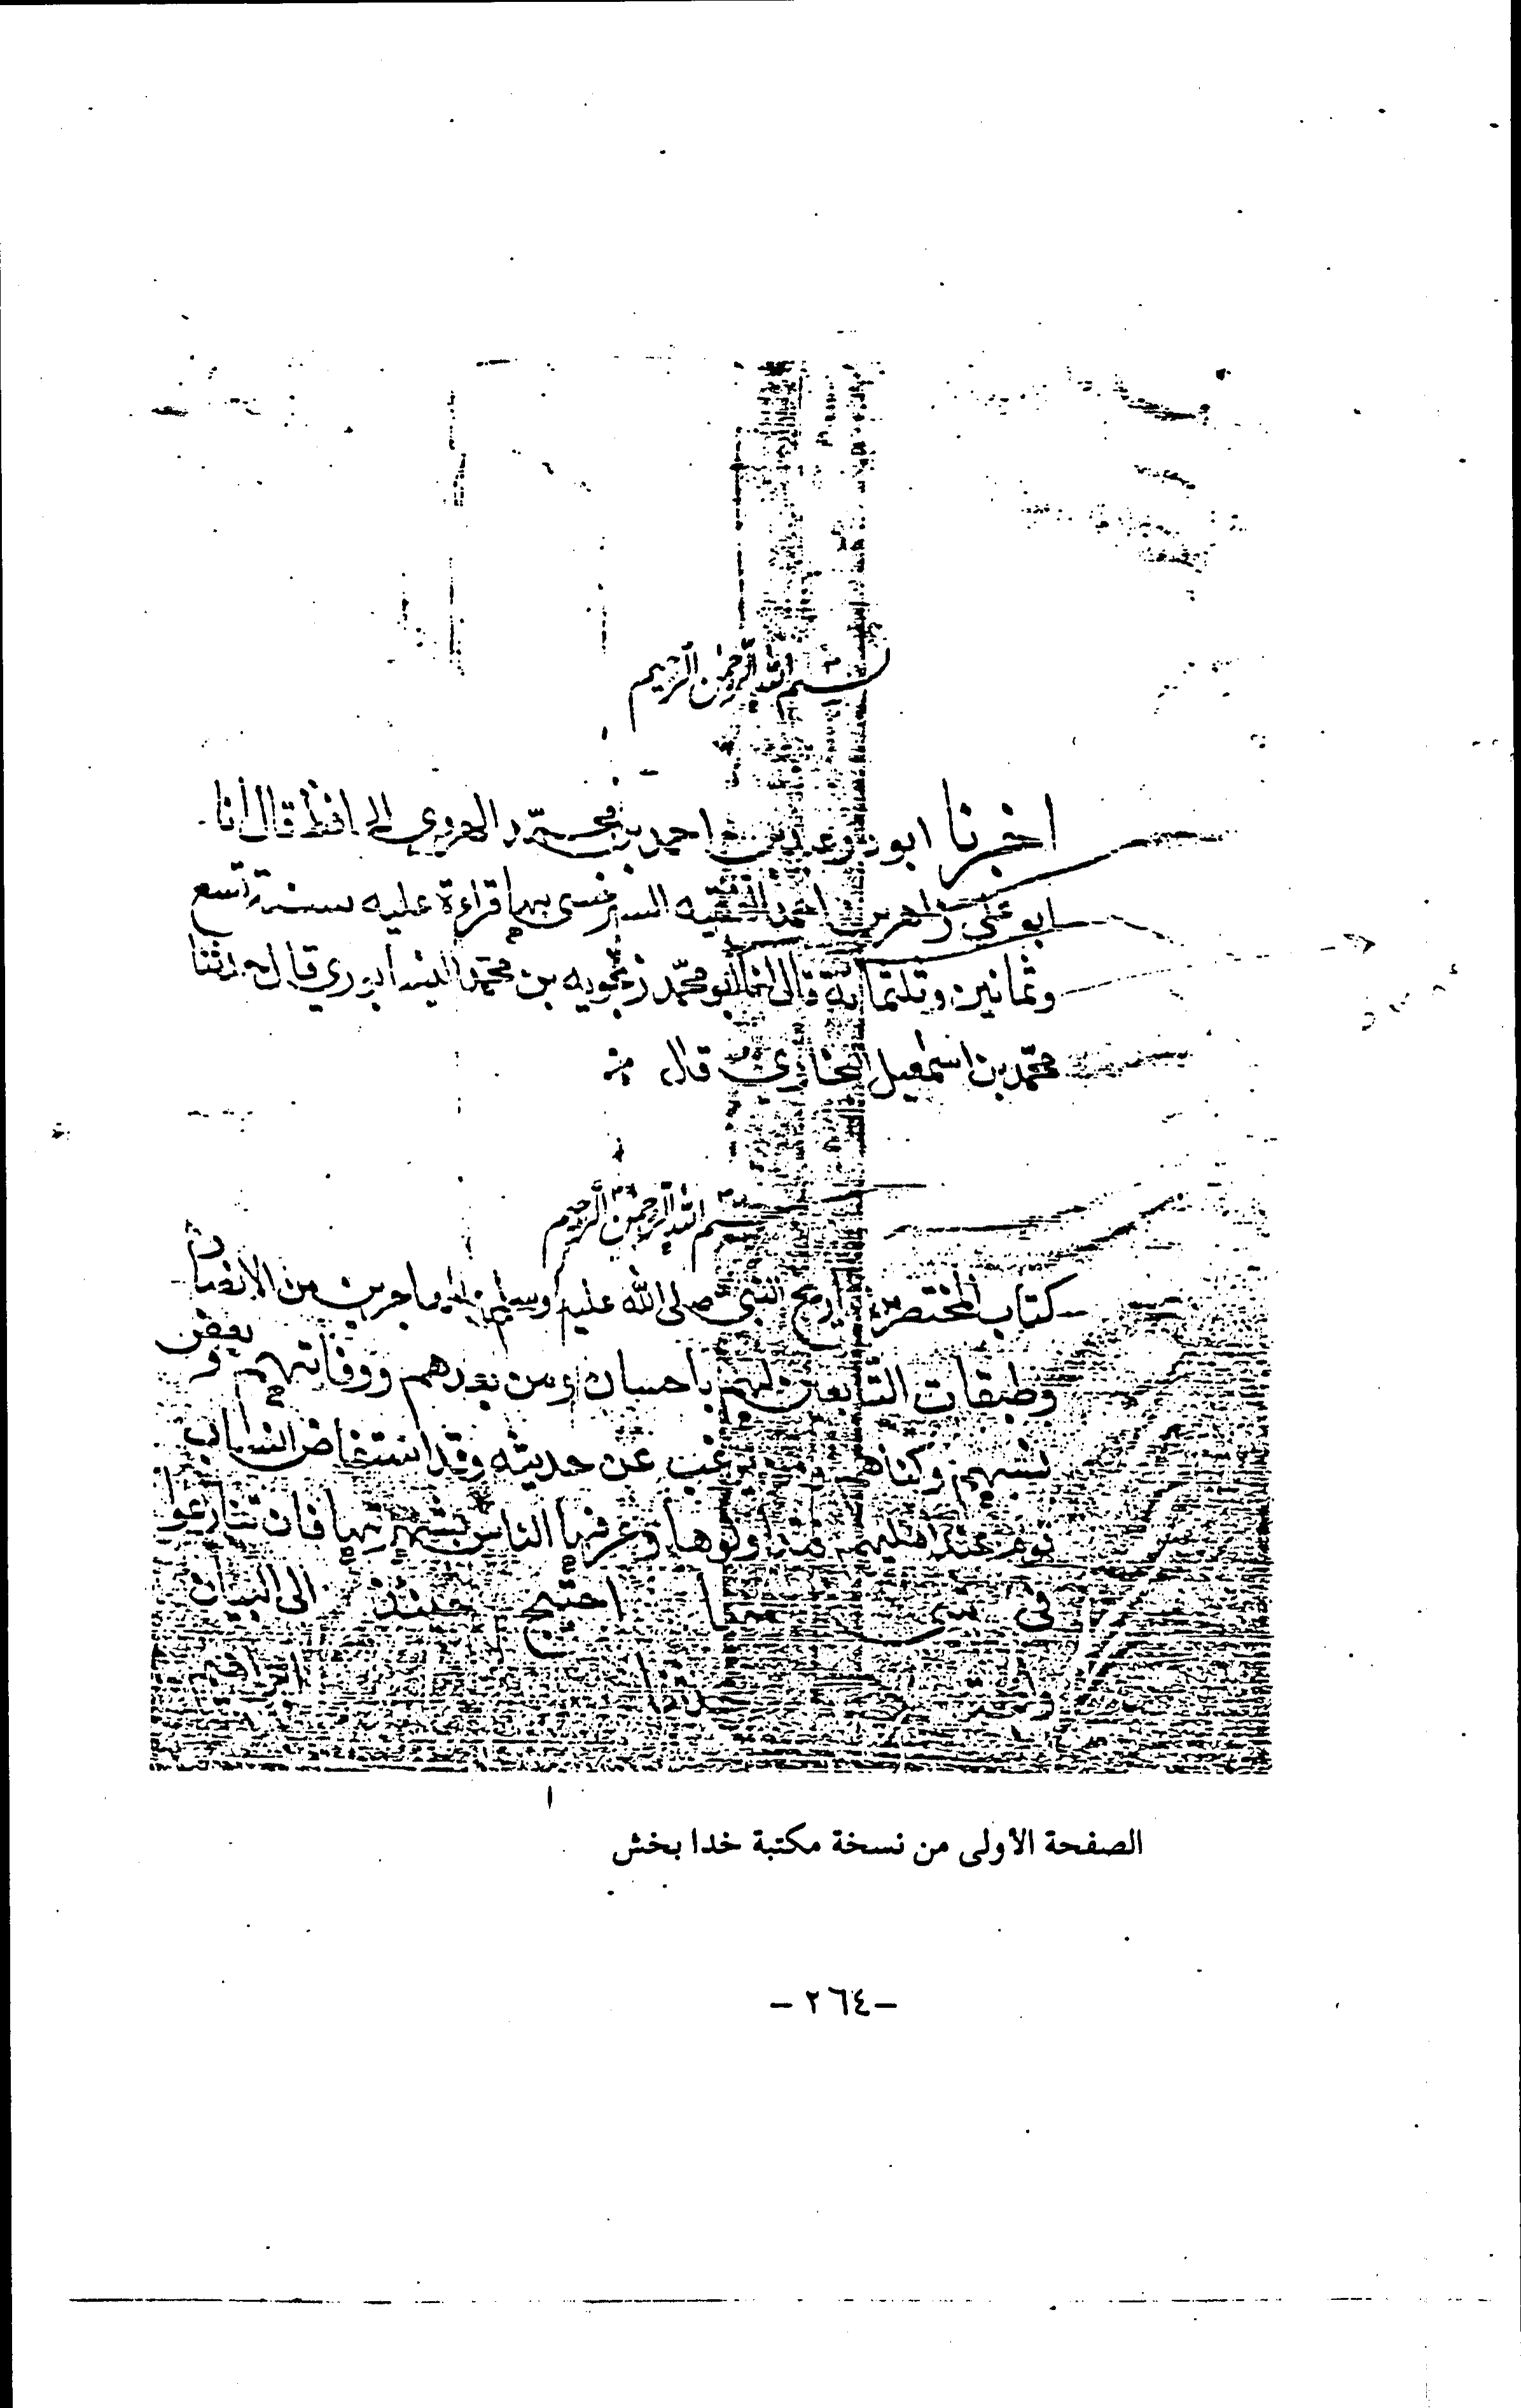 بسم الله الرحمن الرحيم
اخبرنا ابوذر عبد بن احمد بن محمد الهروي الحافظ قال انا
ابو علي زاهر بن احمد الفقيه السرخسي بها قراءة عليه سنة تسع
وثمانين وثلثمائة قال انا ابو محمد زنجويه بن محمد النيسابوري قال حدثنا
محمد بن اسمعيل البخاري قال
بسم الله الرحمن الرحيم
كتاب المختصر من تاريخ النبي صلى الله عليه وسلم والمهاجرين من الانصار
وطبقات التابعين لهم باحسان ومن بعدهم ووفاتهم و بعض
نسبهم وكناهم ومن يرغب عن حديثه وقد استفاض انساب
قوم عند اهليهم فتداولوها وعرفها الناس بشهرتها فان تنازعوا
في شيء منها احتيج حينئذ الى البيان
الصفحة الأولى من نسخة مكتبة خدا بخش
-٢٦٤-